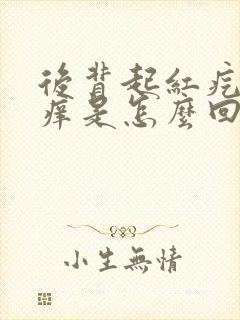 後背起紅疙
痒是怎麼回
小生無情